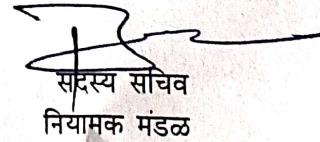 सदस्य सचिव
नियामक मंडळ